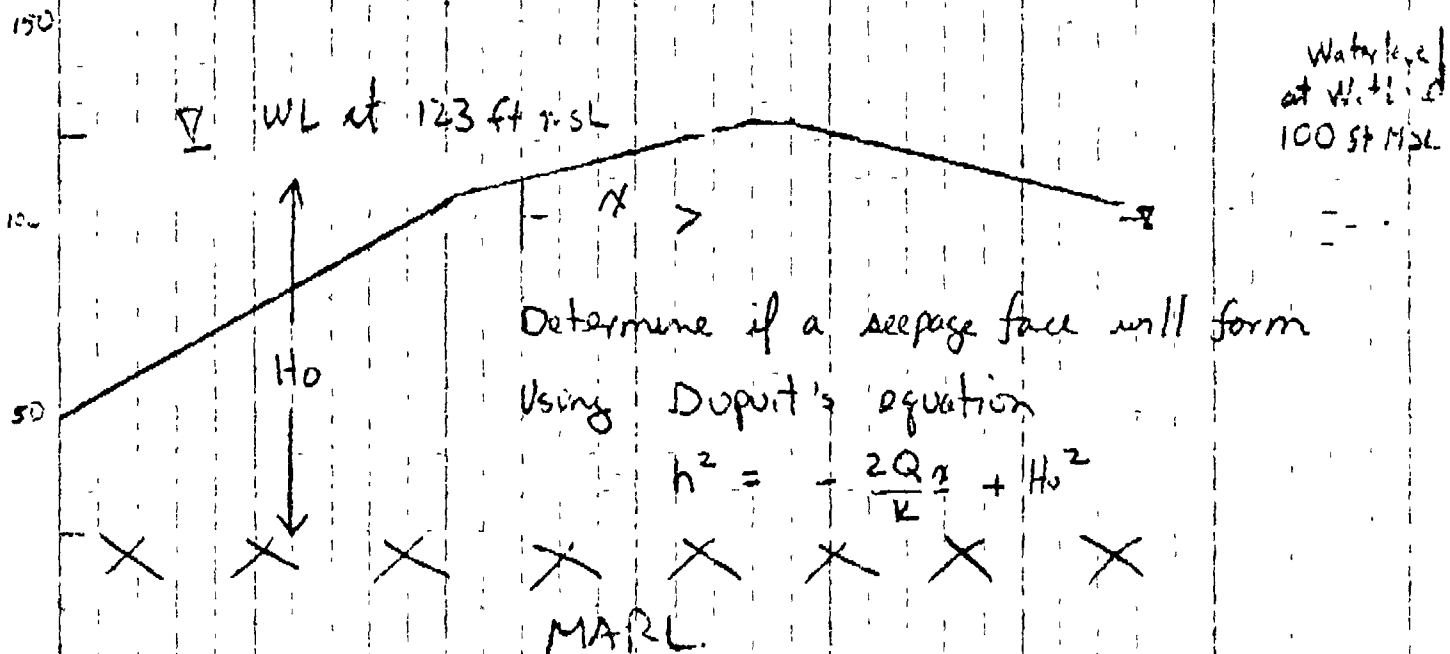 150
Water level
at
100 ft MSL
WL at 123 ft msL
x >
100
Determine if a seepage face will form
Using Dupuit's equation
50
Ho
h² = - 2Qx/K + Ho²
MARL.